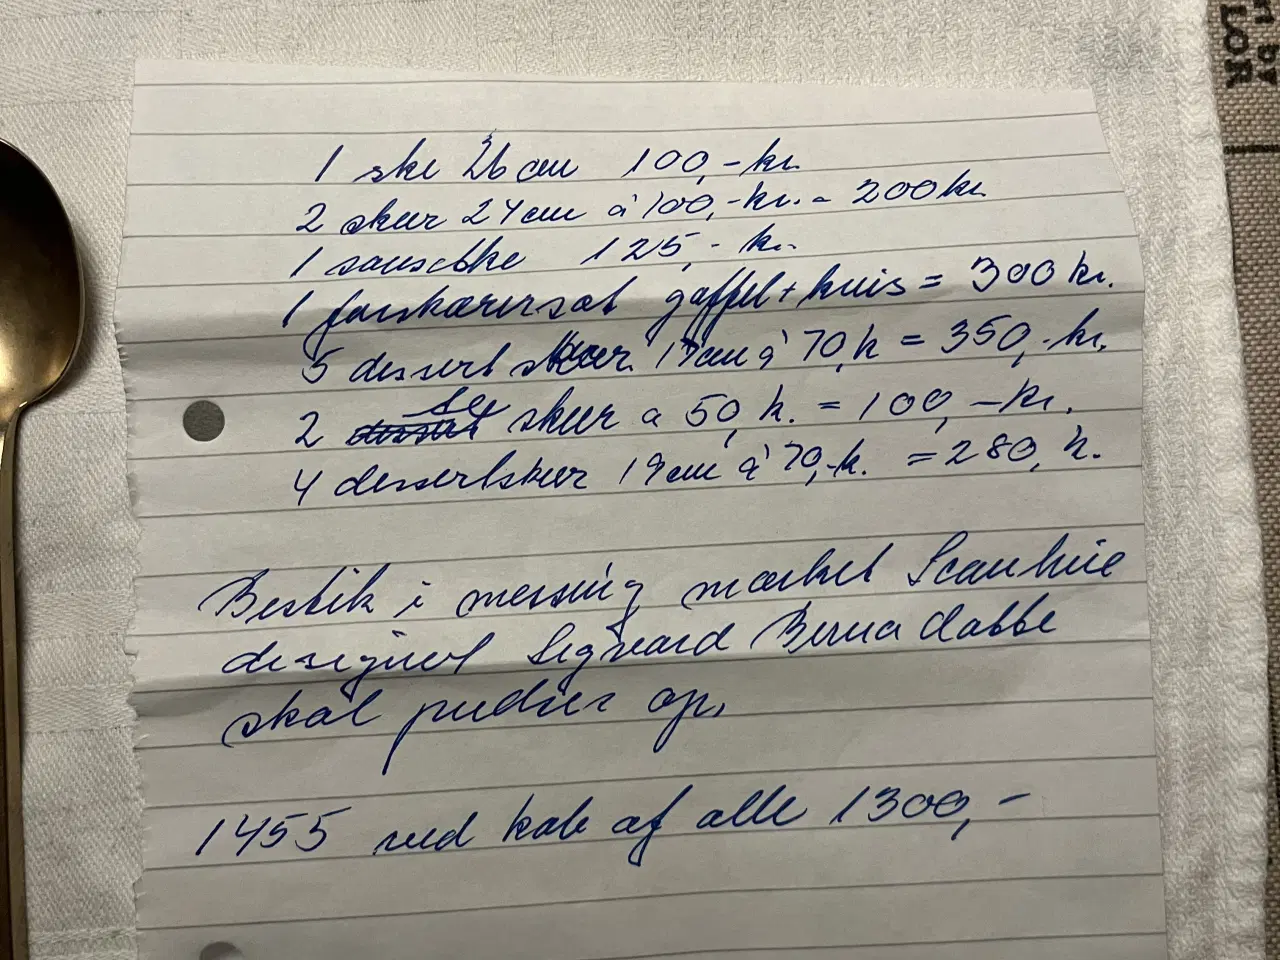 1 ske 26 cm 100,- kr.
2 skeer 24 cm á 100,-kr. = 200 kr.
1 sauseske 125,- kr.
1 forskærersæt gaffel + kniv = 300 kr.
5 dessert skeer 17 cm á 70, k = 350,- kr.
2 skeer a 50, k. = 100,- kr.
4 dessertskeer 19 cm á 70,- k. = 280, k.
Bestik i messing mærket Scanline
designet Sigvard Bernadotte
skal pudses op,
1455 ved køb af alle 1300,-
N BY
LOR